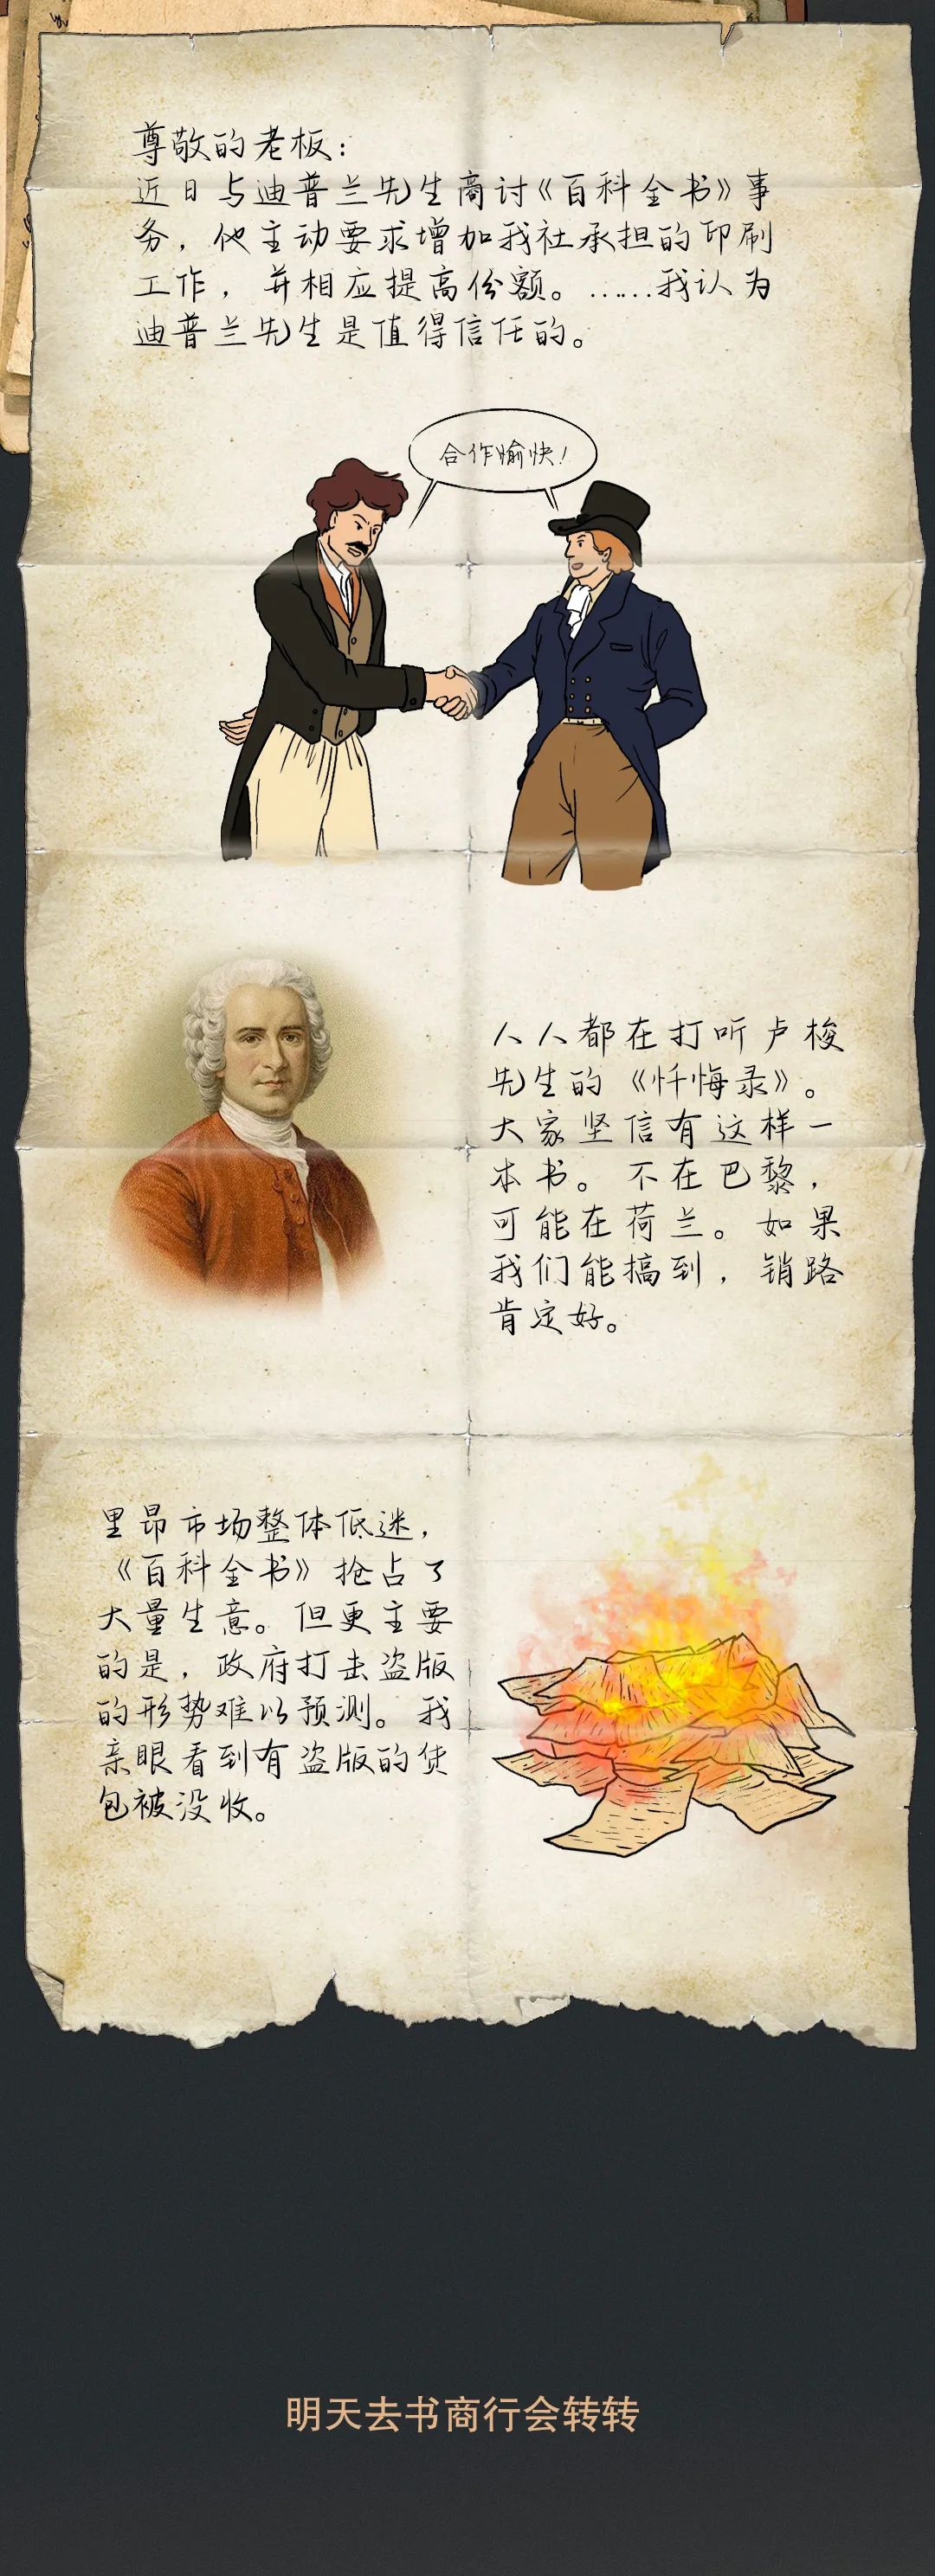 尊敬的老板：
近日与迪普兰先生商讨《百科全书》事
务，他主动要求增加我社承担的印刷
工作，并相应提高份额。……我认为
迪普兰先生是值得信任的。
合作愉快！
人人都在打听卢梭
先生的《忏悔录》。
大家坚信有这样一
本书。不在巴黎，
可能在荷兰。如果
我们能搞到，销路
肯定好。
里昂市场整体低迷，
《百科全书》抢占了
大量生意。但更主要
的是，政府打击盗版
的形势难以预测。我
亲眼看到有盗版的货
包被没收。
明天去书商行会转转